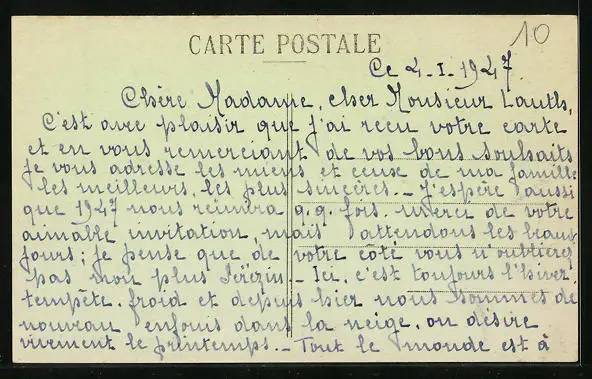 10
CARTE POSTALE
Ce 4-I-1947.
Chère Madame, cher Monsieur Lauth,
C'est avec plaisir que j'ai recu votre carte
et en vous remerciant de vos bons souhaits
je vous adresse les miens et ceuse de ma famille
les meilleurs, les plus sincères. - J'espère aussi
que 1947 nous réunira q.q. fois. merci de votre
aimable invitation, mais attendons les beaux
jours; je pense que de votre côté vous n'oublierez
pas non plus - Ici, c'est toujours l'hiver.
tempête. froid et depuis hier nous sommes de
nouveau enfouis dans la neige, on désire
vivement le printemps. - Tout le monde est à